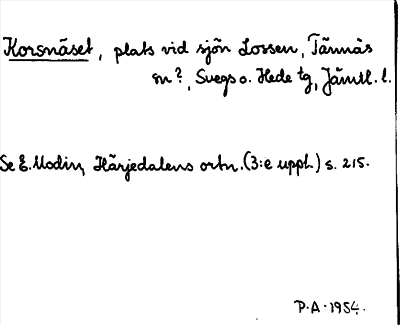 Korsnäset, plats vid sjön Lossen, Tännäs
sn?, Svegs o. Hede tg, Jämtl. l.
Se E. Modin, Härjedalens ortn. (3:e uppl.) s. 215.
P.A. 1954.